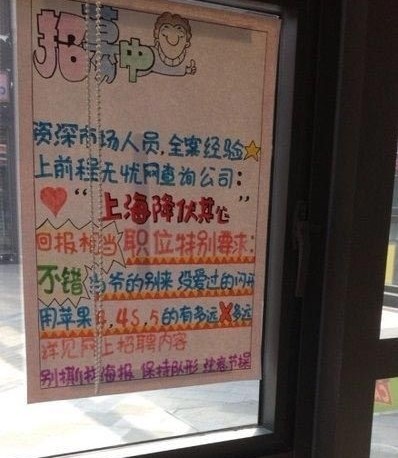 招募中
资深市场人员,全案经验
上前程无忧网查询公司:
"上海降伏其心"
回报相当 职位特别要求:
不错 当爷的别来 没爱过的闪开
用苹果4,4S,5的有多远X多远
详见网上招聘内容
别撕扯海报 保持队形 注意节操